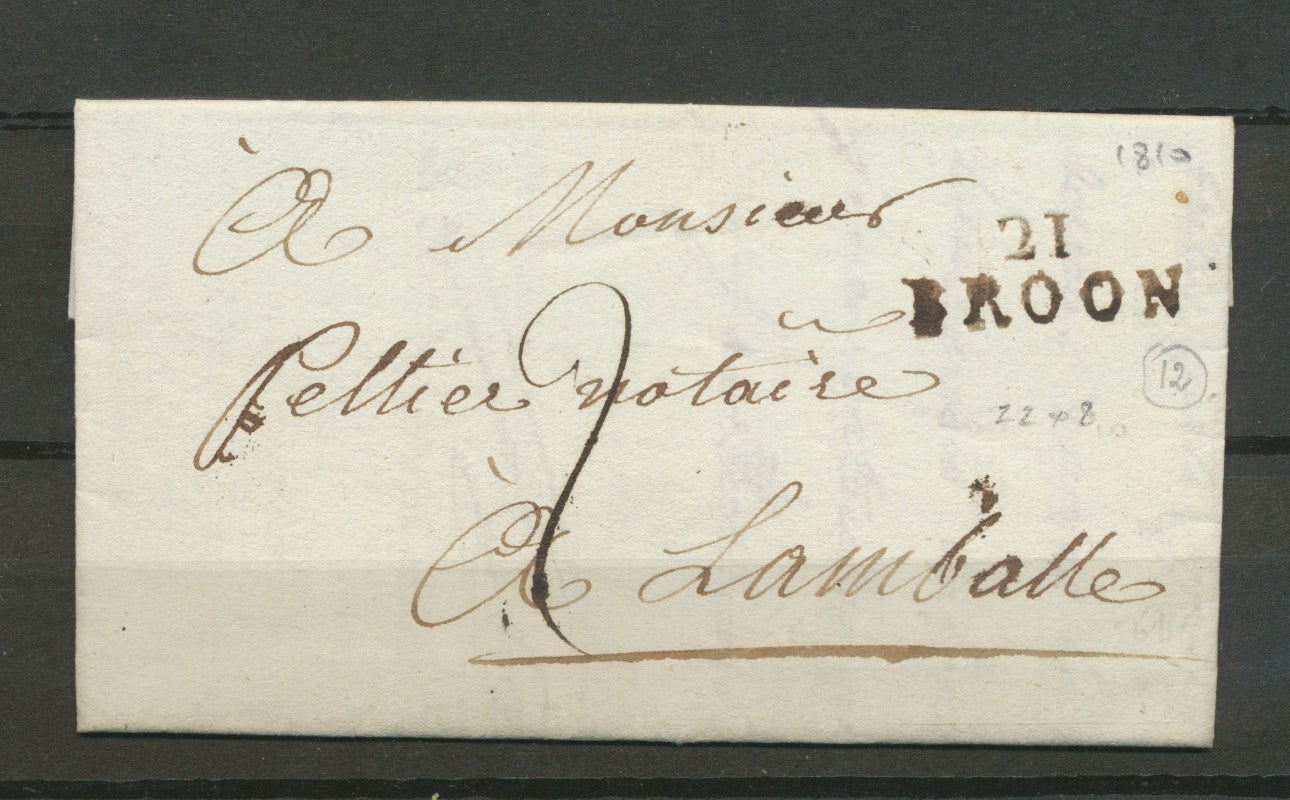 1810
À Monsieur
21
BROON
Peltier notaire
12
22 x 8
2
À Lamballe